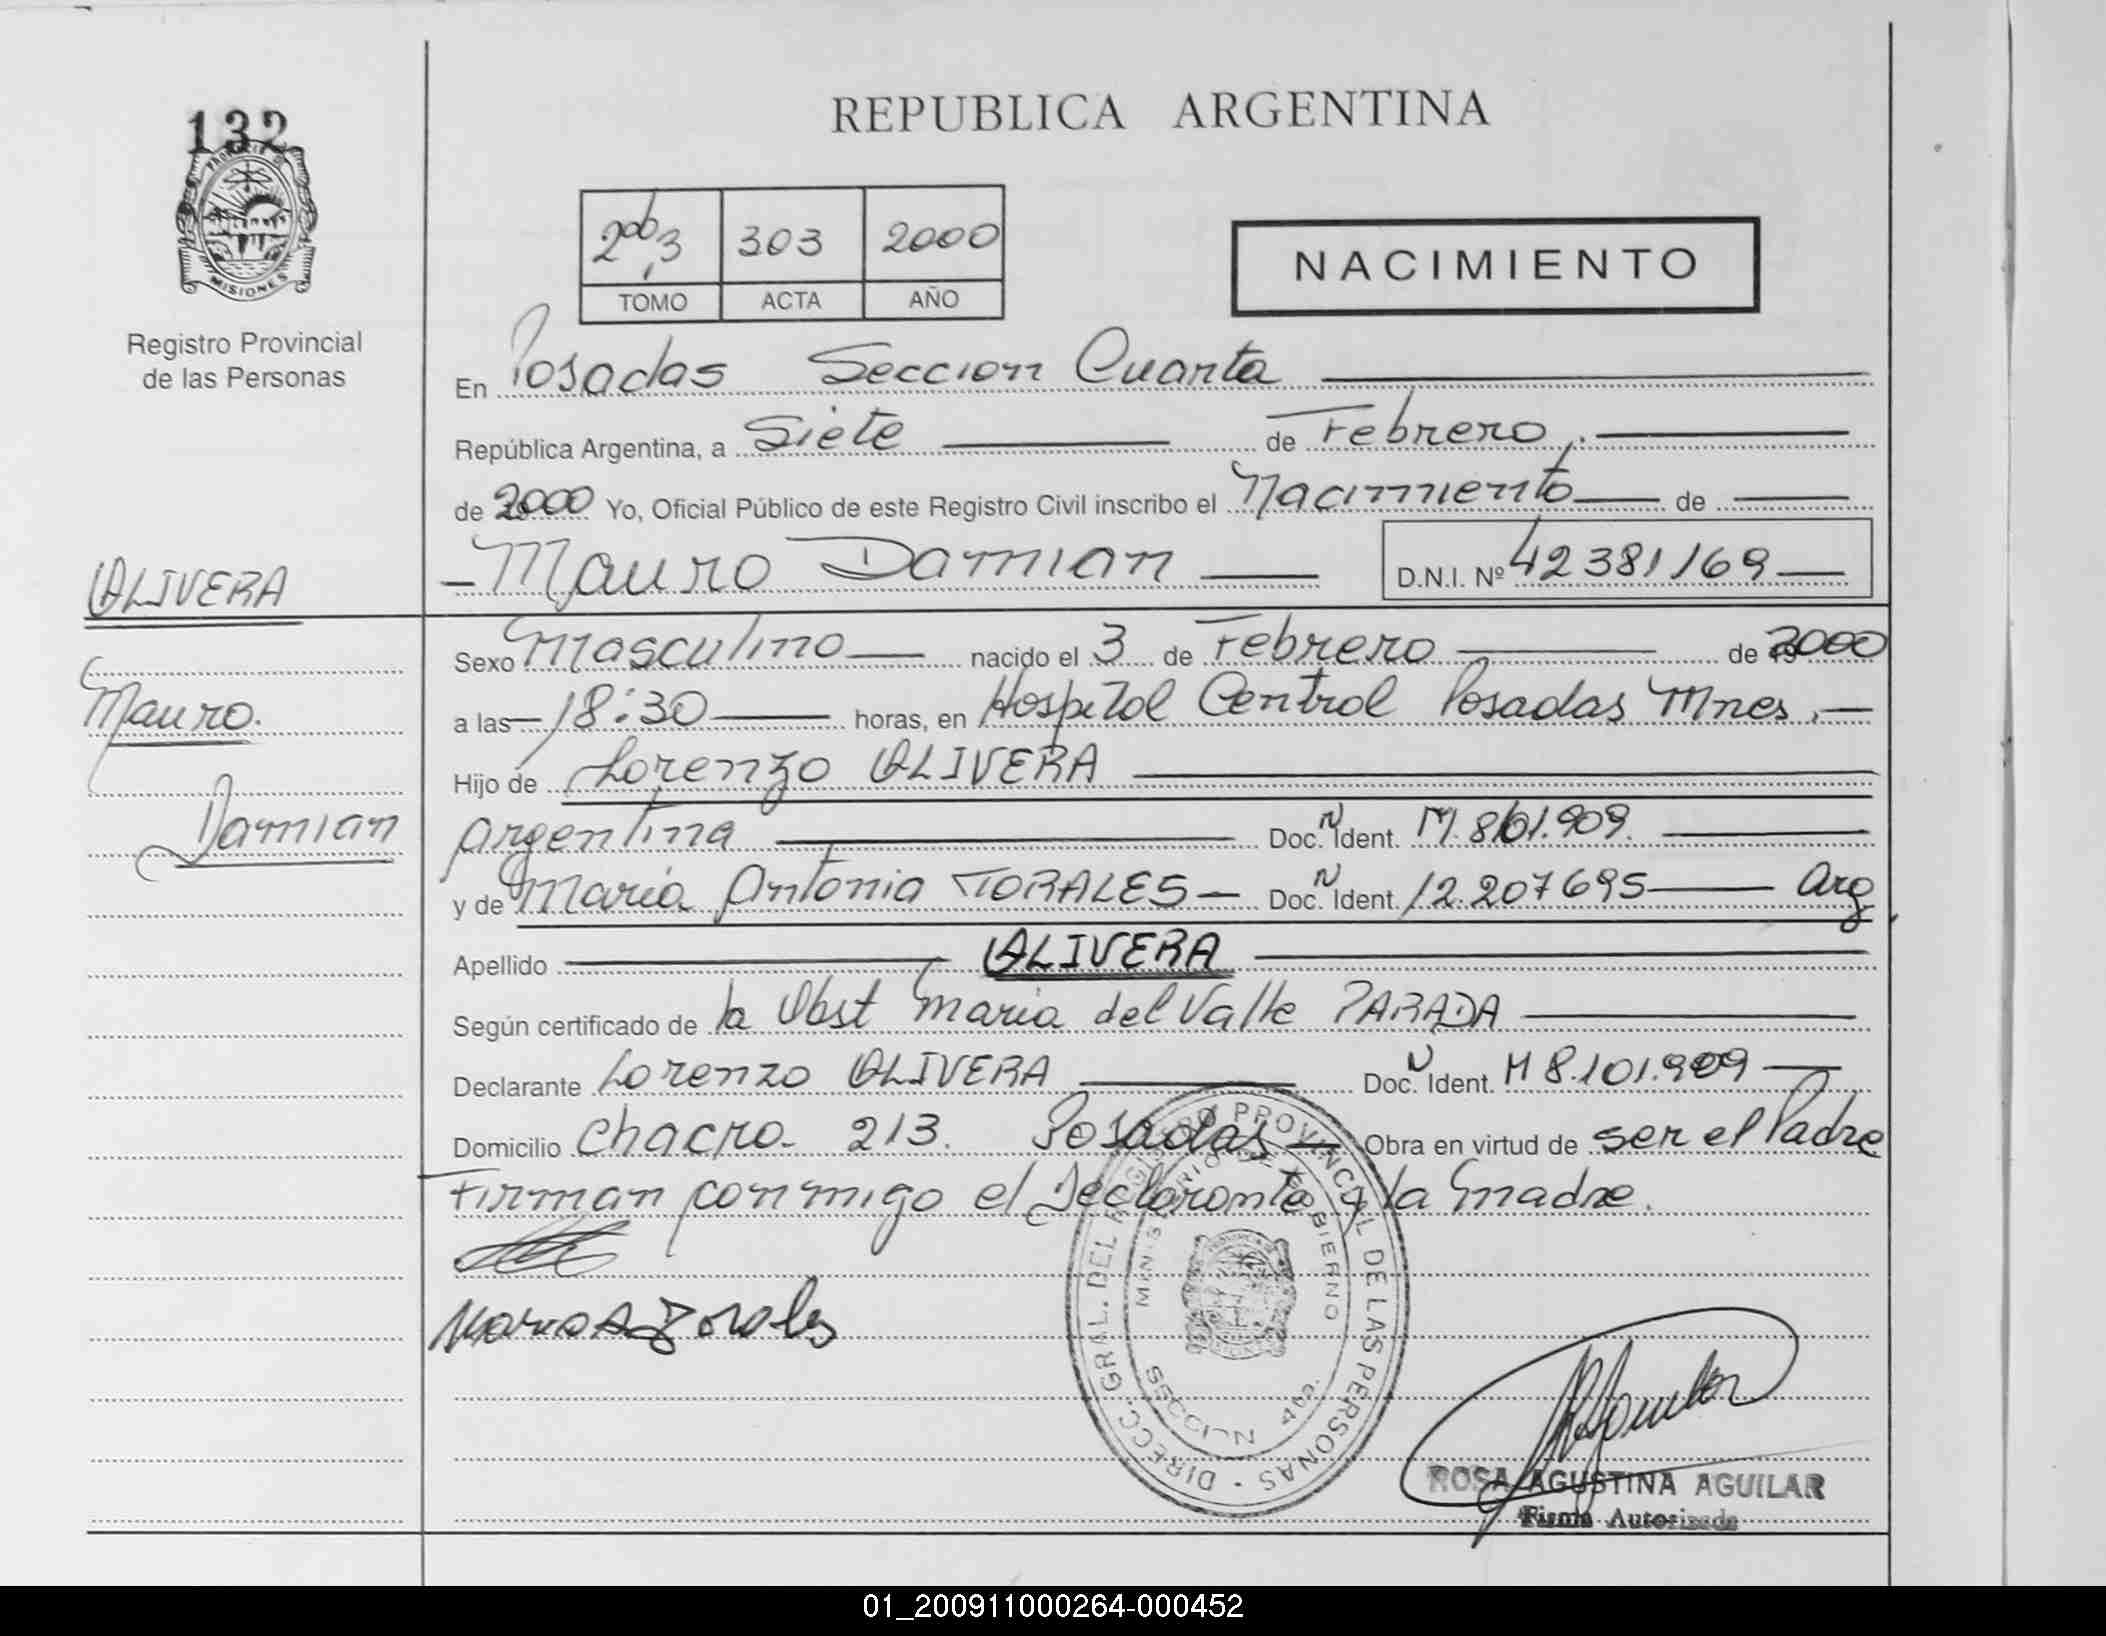 132
PROVINCIA DE
MISIONES
Registro Provincial
de las Personas
REPUBLICA ARGENTINA
303 2000
TOMO ACTA AÑO
NACIMIENTO
En Posadas Seccion Cuarta
República Argentina, a Siete de Febrero
de 2000 Yo, Oficial Público de este Registro Civil inscribo el Nacimiento de
Mauro Damian D.N.I. Nº 42381169
OLIVERA
Mauro.
Damian
Sexo Masculino nacido el 3 de Febrero de 2000
a las 18:30 horas, en Hospital Central Posadas Mnes.
Hijo de Lorenzo OLIVERA
argentina Doc. N Ident. M.
y de Maria Antonia TORALES Doc. N Ident. 12.207695 Arg
Apellido OLIVERA
Según certificado de la Obst Maria del Valle PARADA
Declarante Lorenzo OLIVERA Doc. N Ident. M 8.101.909
Domicilio Chacra 213. Posadas Obra en virtud de ser el Padre
Firman conmigo el Declarante y la Madre.
Maria A Torales
DIRECC. GRAL. DEL REGISTRO PROVINCIAL DE LAS PERSONAS
MINISTERIO DE GOBIERNO
SECCION 4ta.
ROSA AGUSTINA AGUILAR
Firma Autorizada
01_200911000264-000452